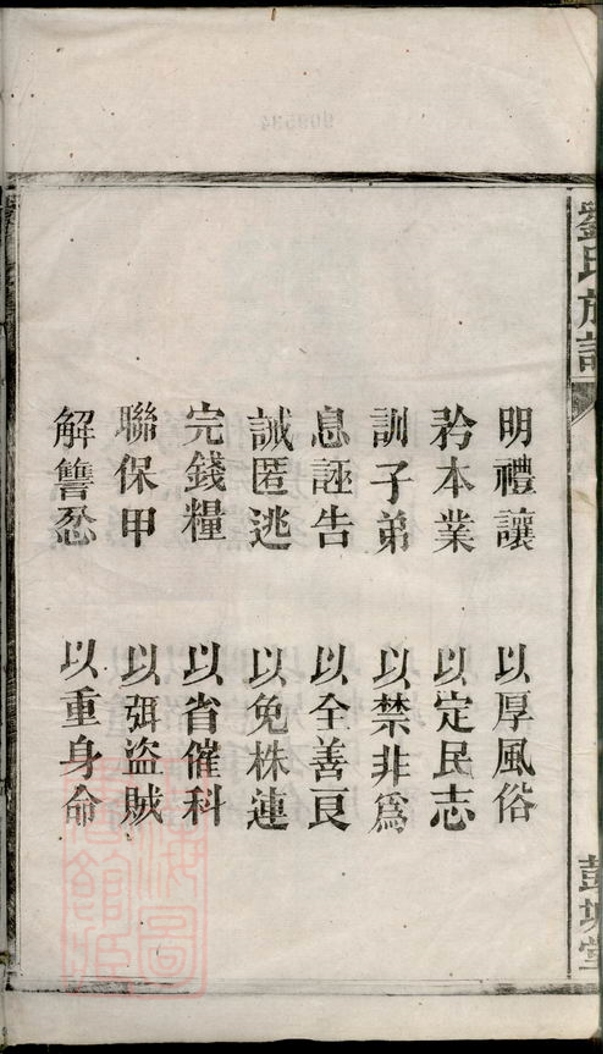 劉氏族譜
彭城堂
明禮讓 以厚風俗
矜本業 以定民志
訓子弟 以禁非為
息誣告 以全善良
誡匿逃 以免株連
完錢糧 以省催科
聯保甲 以弭盜賊
解讐忿 以重身命
上海圖書館藏